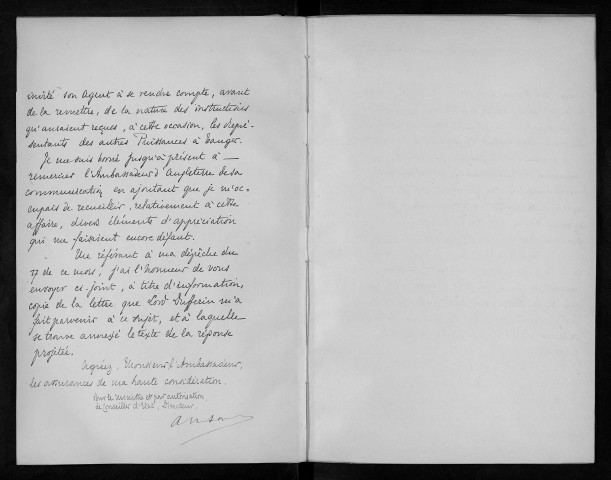 invité son Agent à se rendre compte, avant
de la remettre, de la nature des instructions
qu'auraient reçues, à cette occasion, les Repré-
sentants des autres Puissances à Tanger.
Je me suis borné jusqu'à présent à
remercier l'Ambassadeur d'Angleterre de sa
communication en ajoutant que je m'oc-
cupais de recueillir, relativement à cette
affaire, divers éléments d'appréciation
qui me faisaient encore défaut.
Me référant à ma dépêche du
17 de ce mois, j'ai l'honneur de vous
envoyer ci-joint, à titre d'information,
copie de la lettre que Lord Dufferin m'a
fait parvenir à ce sujet, et à laquelle
se trouve annexé le texte de la réponse
projetée.
Agréez, Monsieur l'Ambassadeur,
les assurances de ma haute considération.
Pour le Ministre et par autorisation,
Le Conseiller d'Etat, Directeur,